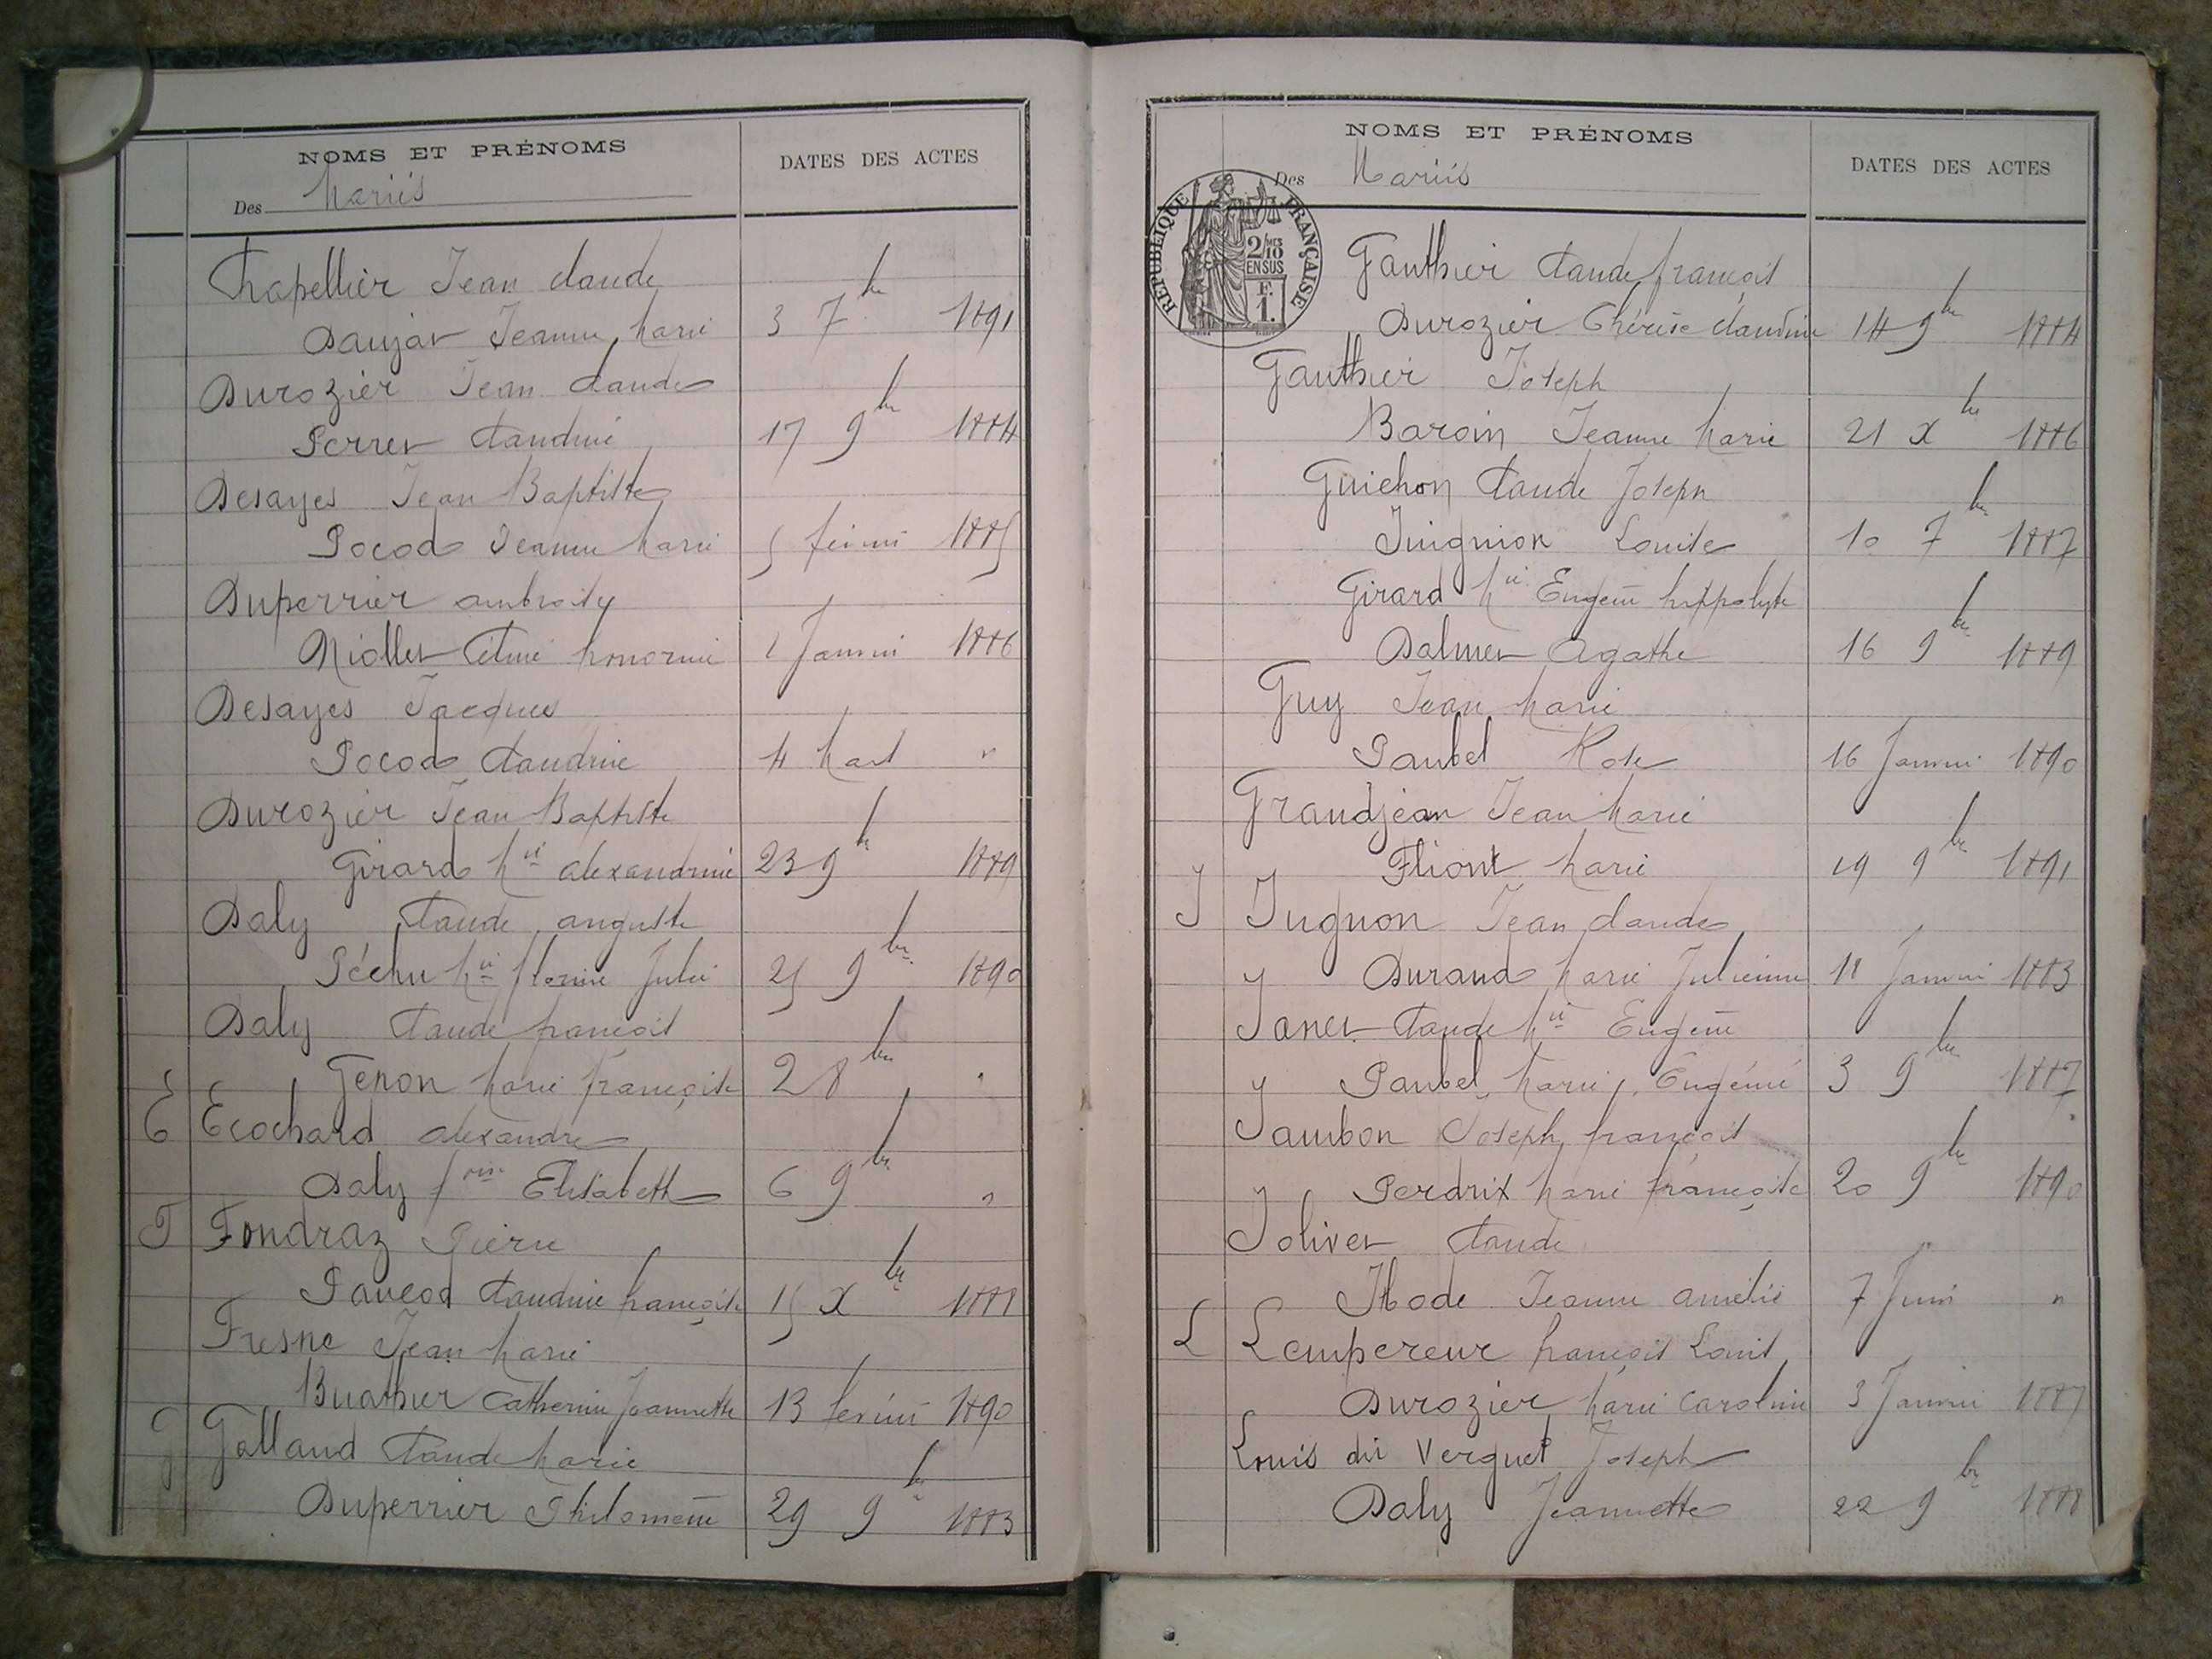 NOMS ET PRÉNOMS
DATES DES ACTES
Des Mariés
Chapellier Jean Claude
Daujat Jeanne Marie 3 7bre 1891
Durozier Jean Claude
Perret Claudine 17 9bre 1884
Desayes Jean Baptiste
Pocod Jeanne Marie 5 février 1885
Duperrier Ambroisy
Niollet Céline honorine Janvier 1886
Desayes Jacques
Pocod Claudine 4 Mars "
Durozier Jean Baptiste
Girard Mie alexandrine 23 9bre 1889
Daly Claude auguste
Péchu Mie florine Julie 25 9bre 1890
Daly Claude françois
Genon Marie françoise 2 8bre "
E Ecochard alexandre
Daly frise Elisabeth 6 9bre "
F Fondraz Pierre
Pancod Claudine françoise 15 Xbre 1888
Fresne Jean Marie
Buathier Catherine Jeannette 13 février 1890
G Galland Claude Marie
Duperrier Philomène 29 9bre 1883
NOMS ET PRÉNOMS
DATES DES ACTES
Des Mariés
RÉPUBLIQUE FRANÇAISE
2/10MES
EN SUS
F.
1.
Gauthier Claude françois
Durozier Thérèse Claudine 14 9bre 1884
Gauthier Joseph
Baroin Jeanne Marie 21 Xbre 1886
Guichon Claude Joseph
Juignion Louise 10 7bre 1887
Girard Mie Eugène hippolyte
Dalmet Agathe 16 9bre 1889
Guy Jean Marie
Paubel Rose 16 Janvier 1890
Grandjean Jean Marie
Fliont Marie 19 9bre 1891
J Jugnon Jean Claude
y Durand Marie Julienne 18 Janvier 1883
Janet Claude Mie Eugène
y Paubel Marie Eugénie 3 9bre 1887
Jambon Joseph françois
y Perdrix Marie françoise 20 9bre 1890
Jolivet Claude
Hode Jeanne amélie 7 Juin "
L Lempereur françois Louis
Durozier Marie Caroline 3 Janvier 1887
Louis dit Verguet Joseph
Daly Jeannette 22 9bre 1888